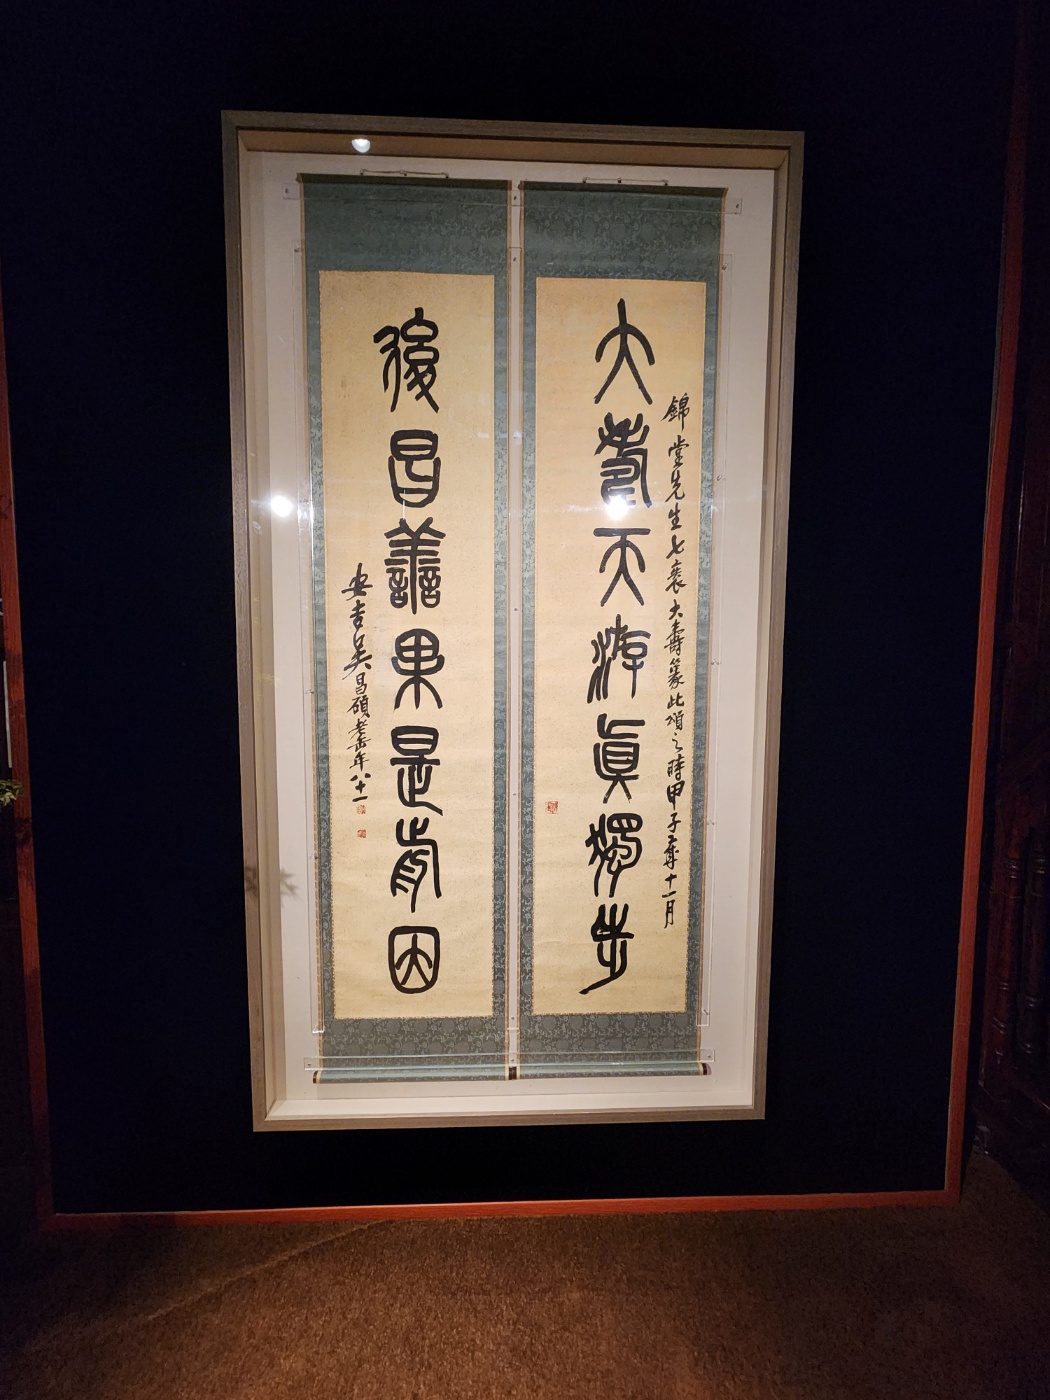 錦堂先生七袠大壽篆此頌之時甲子壽十一月
大耋天游真獨步
後昌善果是前因
安吉吳昌碩老缶年八十一